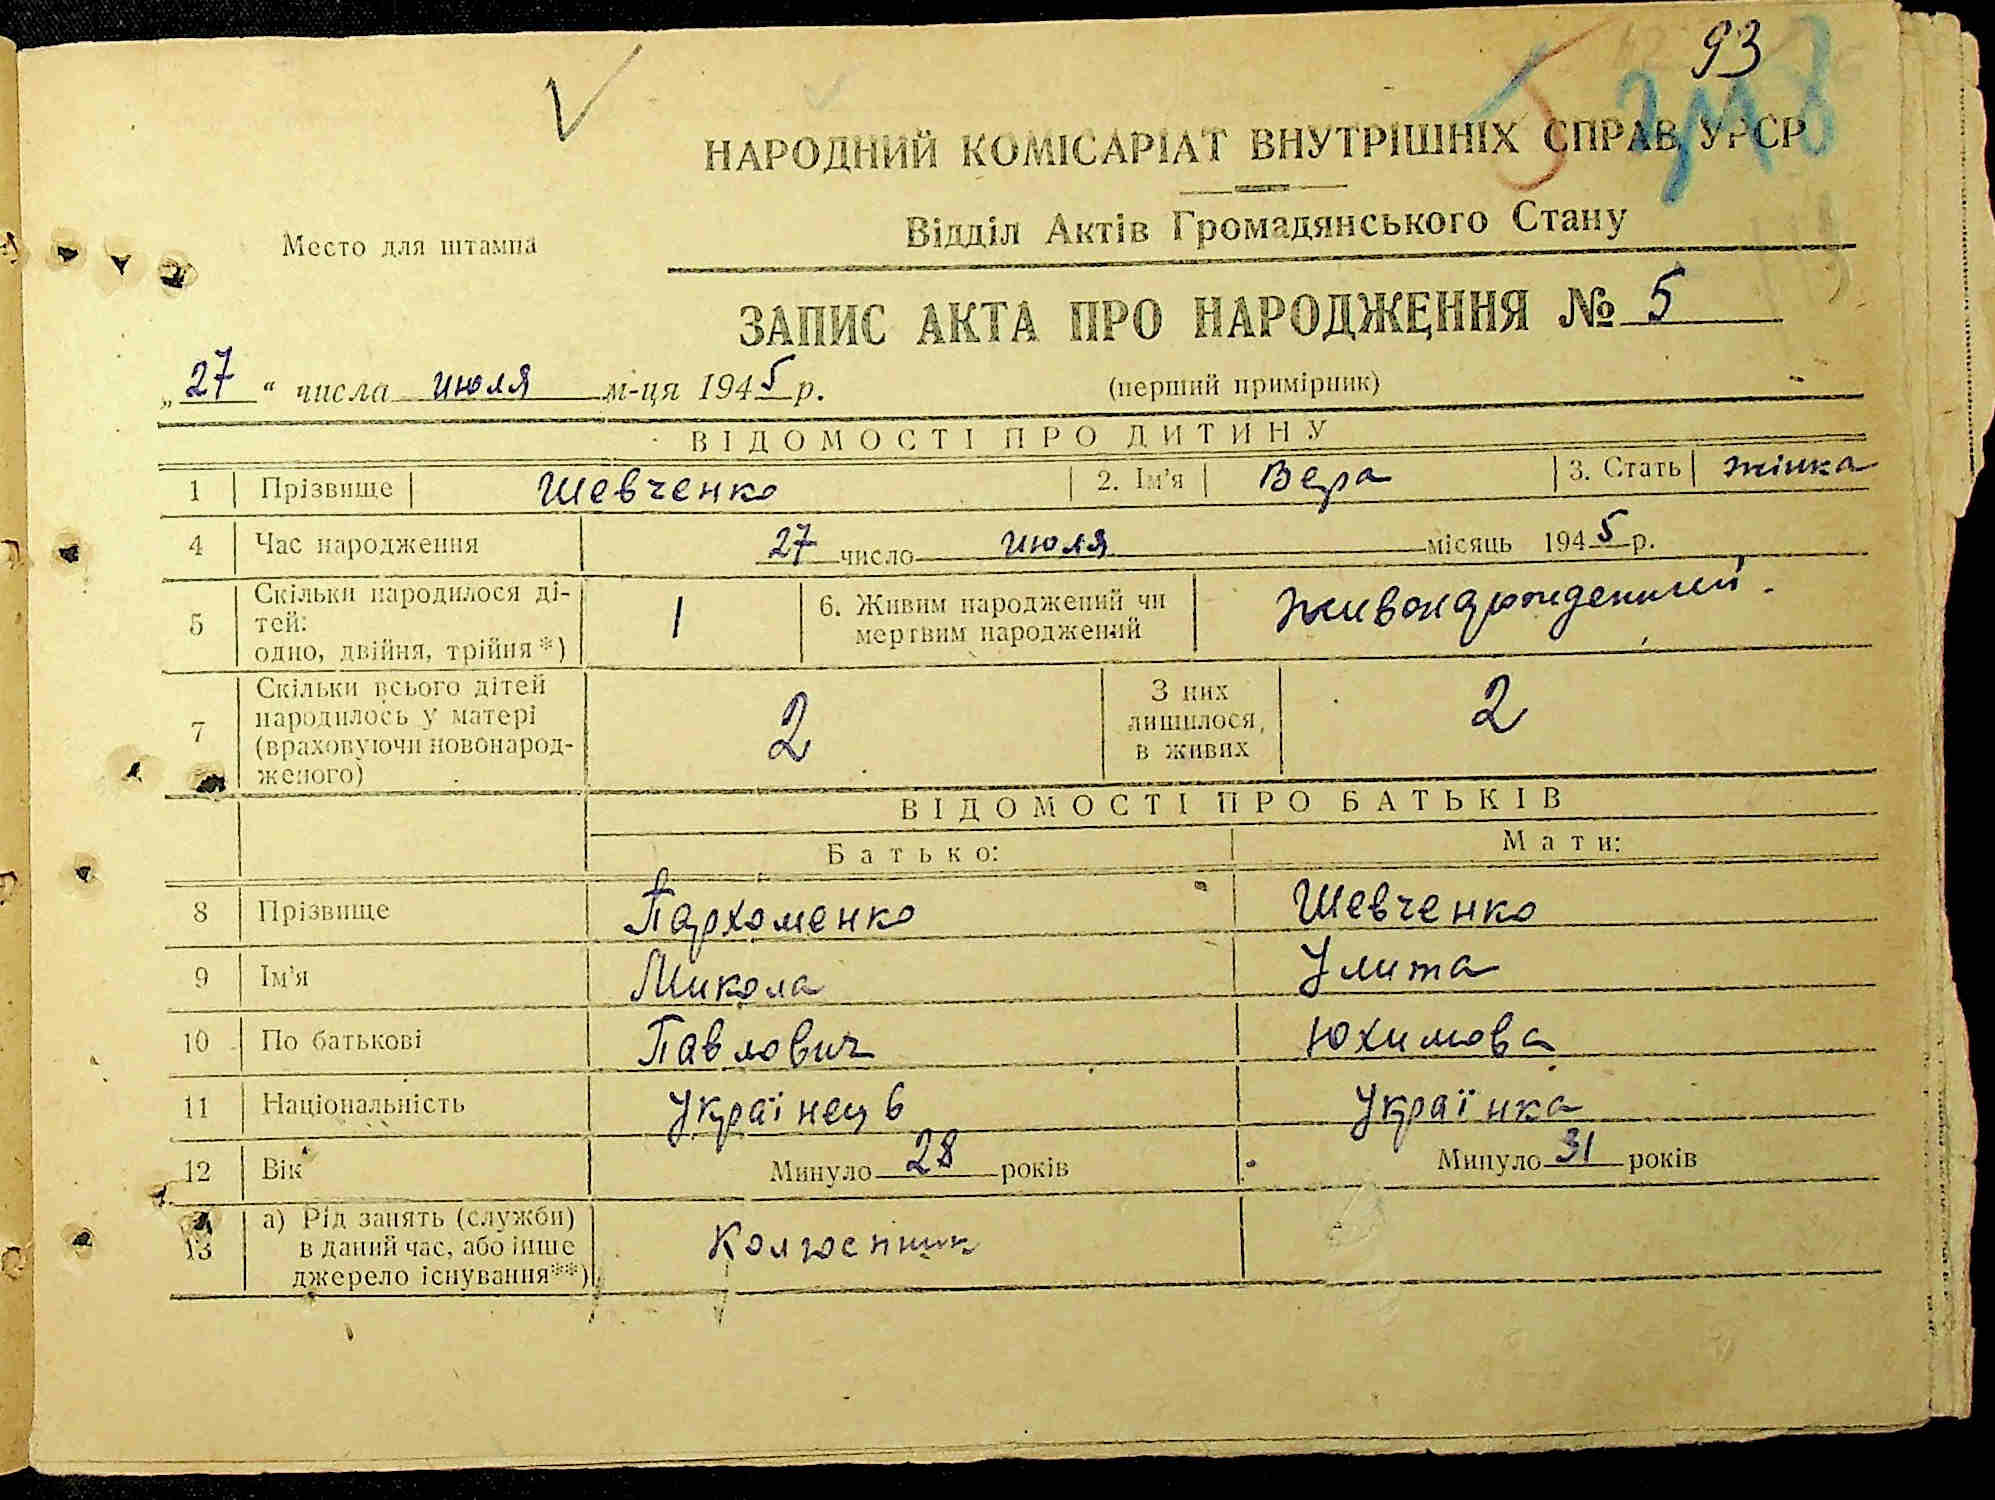 93
НАРОДНИЙ КОМІСАРІАТ ВНУТРІШНІХ СПРАВ УРСР
Відділ Актів Громадянського Стану
Место для штампа
ЗАПИС АКТА ПРО НАРОДЖЕННЯ № 5
„27“ числа июля м-ця 1945 р. (перший примірник)
ВІДОМОСТІ ПРО ДИТИНУ
1 Прізвище Шевченко 2. Ім'я Вера 3. Стать жінка
4 Час народження 27 число июля місяць 1945 р.
5 Скільки народилося ді-
тей:
одно, двійня, трійня*) 1 6. Живим народжений чи
мертвим народжений
7 Скільки всього дітей
народилось у матері
(враховуючи новонарод-
женого) 2 З них
лишилося
в живих 2
ВІДОМОСТІ ПРО БАТЬКІВ
Батько: Мати:
8 Прізвище Пархоменко Шевченко
9 Ім'я Микола Улита
10 По батькові Павлович Юхимова
11 Національність Українець Українка
12 Вік Минуло 28 років Минуло 31 років
13 а) Рід занять (служби)
в даний час, або інше
джерело існування**)